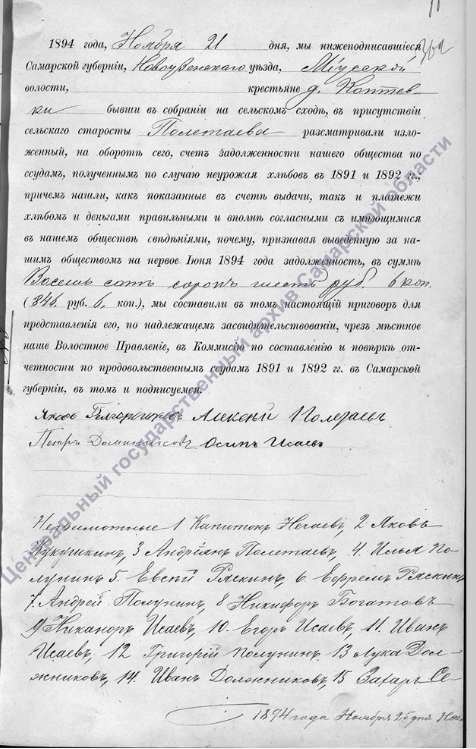 11
302
1894 года, Ноября 21 дня, мы нижеподписавшіеся
Самарской губерніи, Новоузенскаго уѣзда, Міусской
волости, крестьяне д. Коптев
ки бывши въ собраніи на сельскомъ сходѣ, въ присутствіи
сельскаго старосты Полетаева разсматривали изло-
женный, на оборотѣ сего, счетъ задолженности нашего общества по
ссудамъ, полученнымъ по случаю неурожая хлѣбовъ въ 1891 и 1892 гг.,
причемъ нашли, какъ показанные въ счетѣ выдачи, такъ и платежи
хлѣбомъ и деньгами правильными и вполнѣ согласными съ имѣющимися
въ нашемъ обществѣ свѣдѣніями, почему, признавая выведенную за на-
шимъ обществомъ на первое Іюня 1894 года задолженность, въ суммѣ
Восемь сотъ сорокъ шесть руб. 6 коп.
(846 руб. 6, коп.), мы составили въ томъ настоящій приговоръ для
представленія его, по надлежащемъ засвидѣтельствованіи, чрезъ мѣстное
наше Волостное Правленіе, въ Комиссію по составленію и повѣркѣ от-
четности по продовольственнымъ ссудамъ 1891 и 1892 гг. въ Самарской
губерніи, въ томъ и подписуемся:
Яковъ Алексей Полетаевъ
Петръ Осипъ Исаевъ
Неграмотные 1 Капитонъ Нечаевъ, 2 Яковъ
Кукушкинъ, 3 Андріанъ Полетаевъ, 4. Илья По-
лунинъ 5. Евсѣй Ряскинъ, 6 Ефремъ Ряскинъ
7. Андрей Полунинъ, 8 Никифоръ Богатовъ
9 Никаноръ Исаевъ, 10. Егоръ Исаевъ, 11. Иванъ
Исаевъ, 12 Григорій Полунинъ, 13 Лука Дол-
жниковъ, 14. Иванъ Должниковъ, 15 Захаръ Се-
1894 года Ноября 25 дня
Центральный государственный архив Самарской области